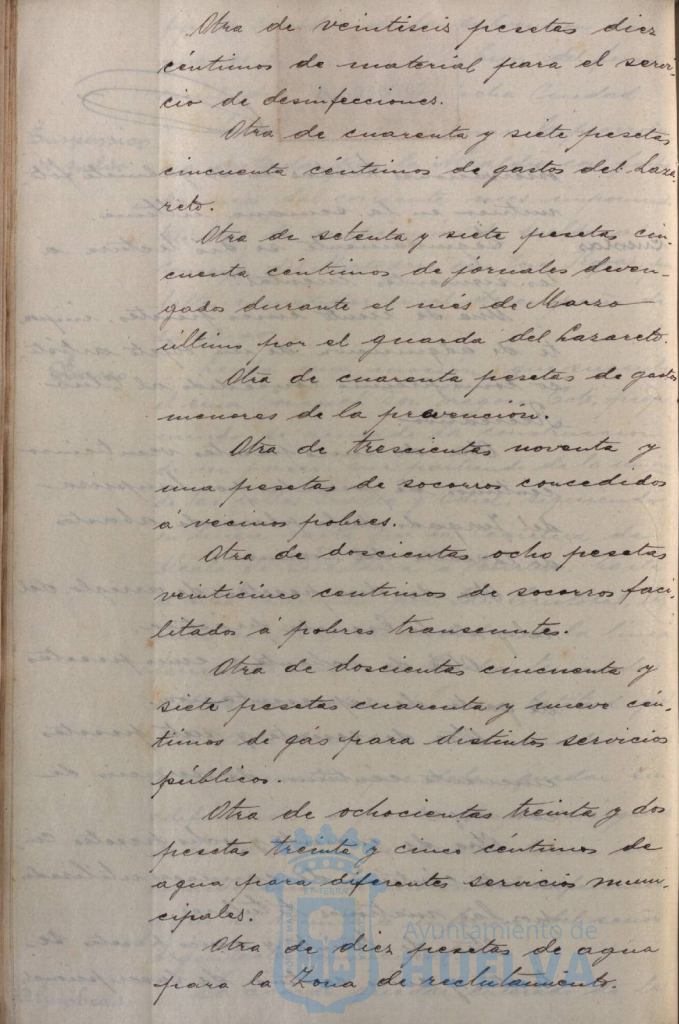 Otra de veintiseis pesetas diez
céntimos de material para el servi-
cio de desinfecciones.
Otra de cuarenta y siete pesetas
cincuenta céntimos de gastos del Laza-
reto.
Otra de setenta y siete pesetas cin-
cuenta céntimos de jornales deven-
gados durante el més de Marzo
último por el guarda del Lazareto.
Otra de cuarenta pesetas de gastos
menores de la prevención.
Otra de trescientas noventa y
una pesetas de socorros concedidos
á vecinos pobres.
Otra de doscientas ocho pesetas
veinticinco centimos de socorros faci-
litados á pobres transeuntes.
Otra de doscientas cincuenta y
siete pesetas cuarenta y nueve cén-
timos de gás para distintos servicios
públicos.
Otra de ochocientas treinta y dos
pesetas treinta y cinco céntimos de
agua para diferentes servicios muni-
cipales.
Otra de diez pesetas de agua
para la Zona de reclutamiento.
Ayuntamiento de
HUELVA